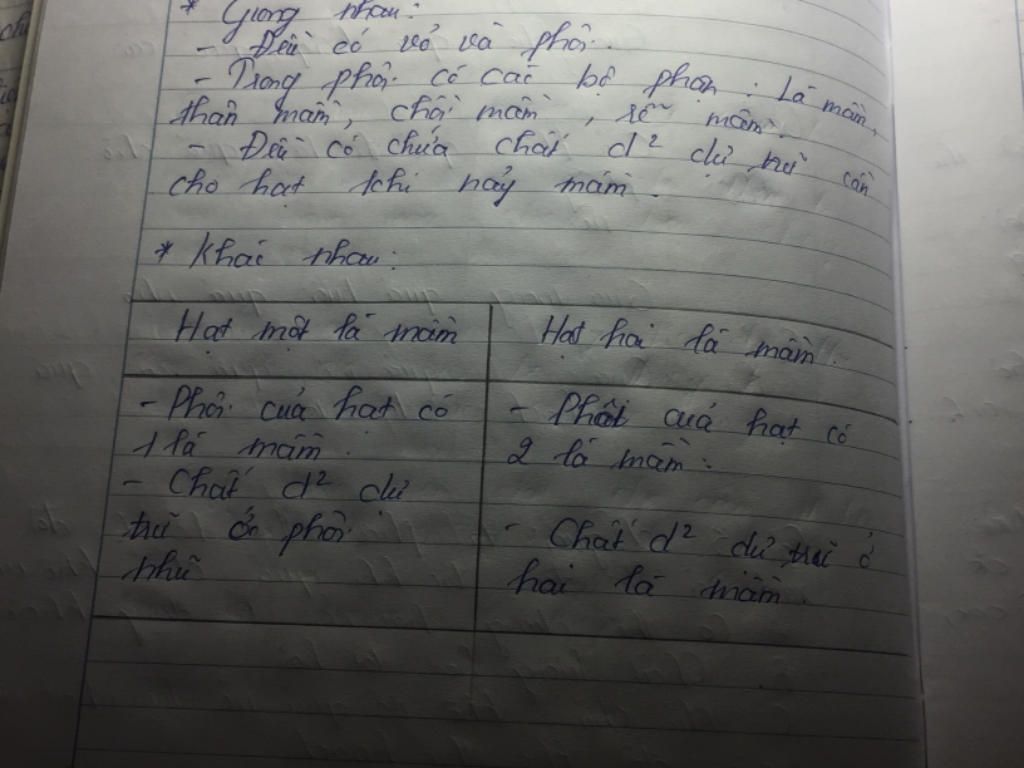 * Giống nhau:
- Đều có vỏ và phôi.
- Trong phôi có các bộ phận: Lá mầm,
thân mầm, chồi mầm, rễ mầm.
- Đều có chứa chất d² dự trữ cần
cho hạt khi nảy mầm.
* Khác nhau:
Hạt một lá mầm
- Phôi của hạt có
1 lá mầm.
- Chất d² dự
trữ ở phôi
nhũ
Hạt hai lá mầm.
- Phôi của hạt có
2 lá mầm.
- Chất d² dự trữ ở
hai lá mầm.